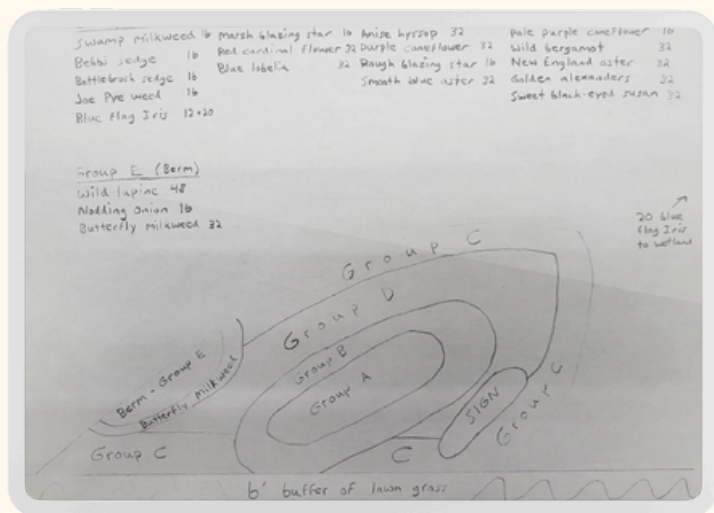 Swamp milkweed 16
Bebbi sedge 16
Bottlebrush sedge 16
Joe Pye weed 16
Blue Flag Iris 12+20
Marsh blazing star 16
Red cardinal flower 32
Blue lobelia 32
Anise hyssop 32
Purple coneflower 32
Rough blazing star 16
Smooth blue aster 32
Pale purple coneflower 16
Wild bergamot 32
New England aster 32
Golden alexanders 32
Sweet black-eyed susan 32
Group E (Berm)
Wild lupine 48
Nodding onion 16
Butterfly milkweed 32
20 blue
flag Iris
to wetland
Group C
Group D
Group B
Group A
Berm - Group E
Butterfly Milkweed
SIGN
Group C
Group C
C
6' buffer of lawn grass